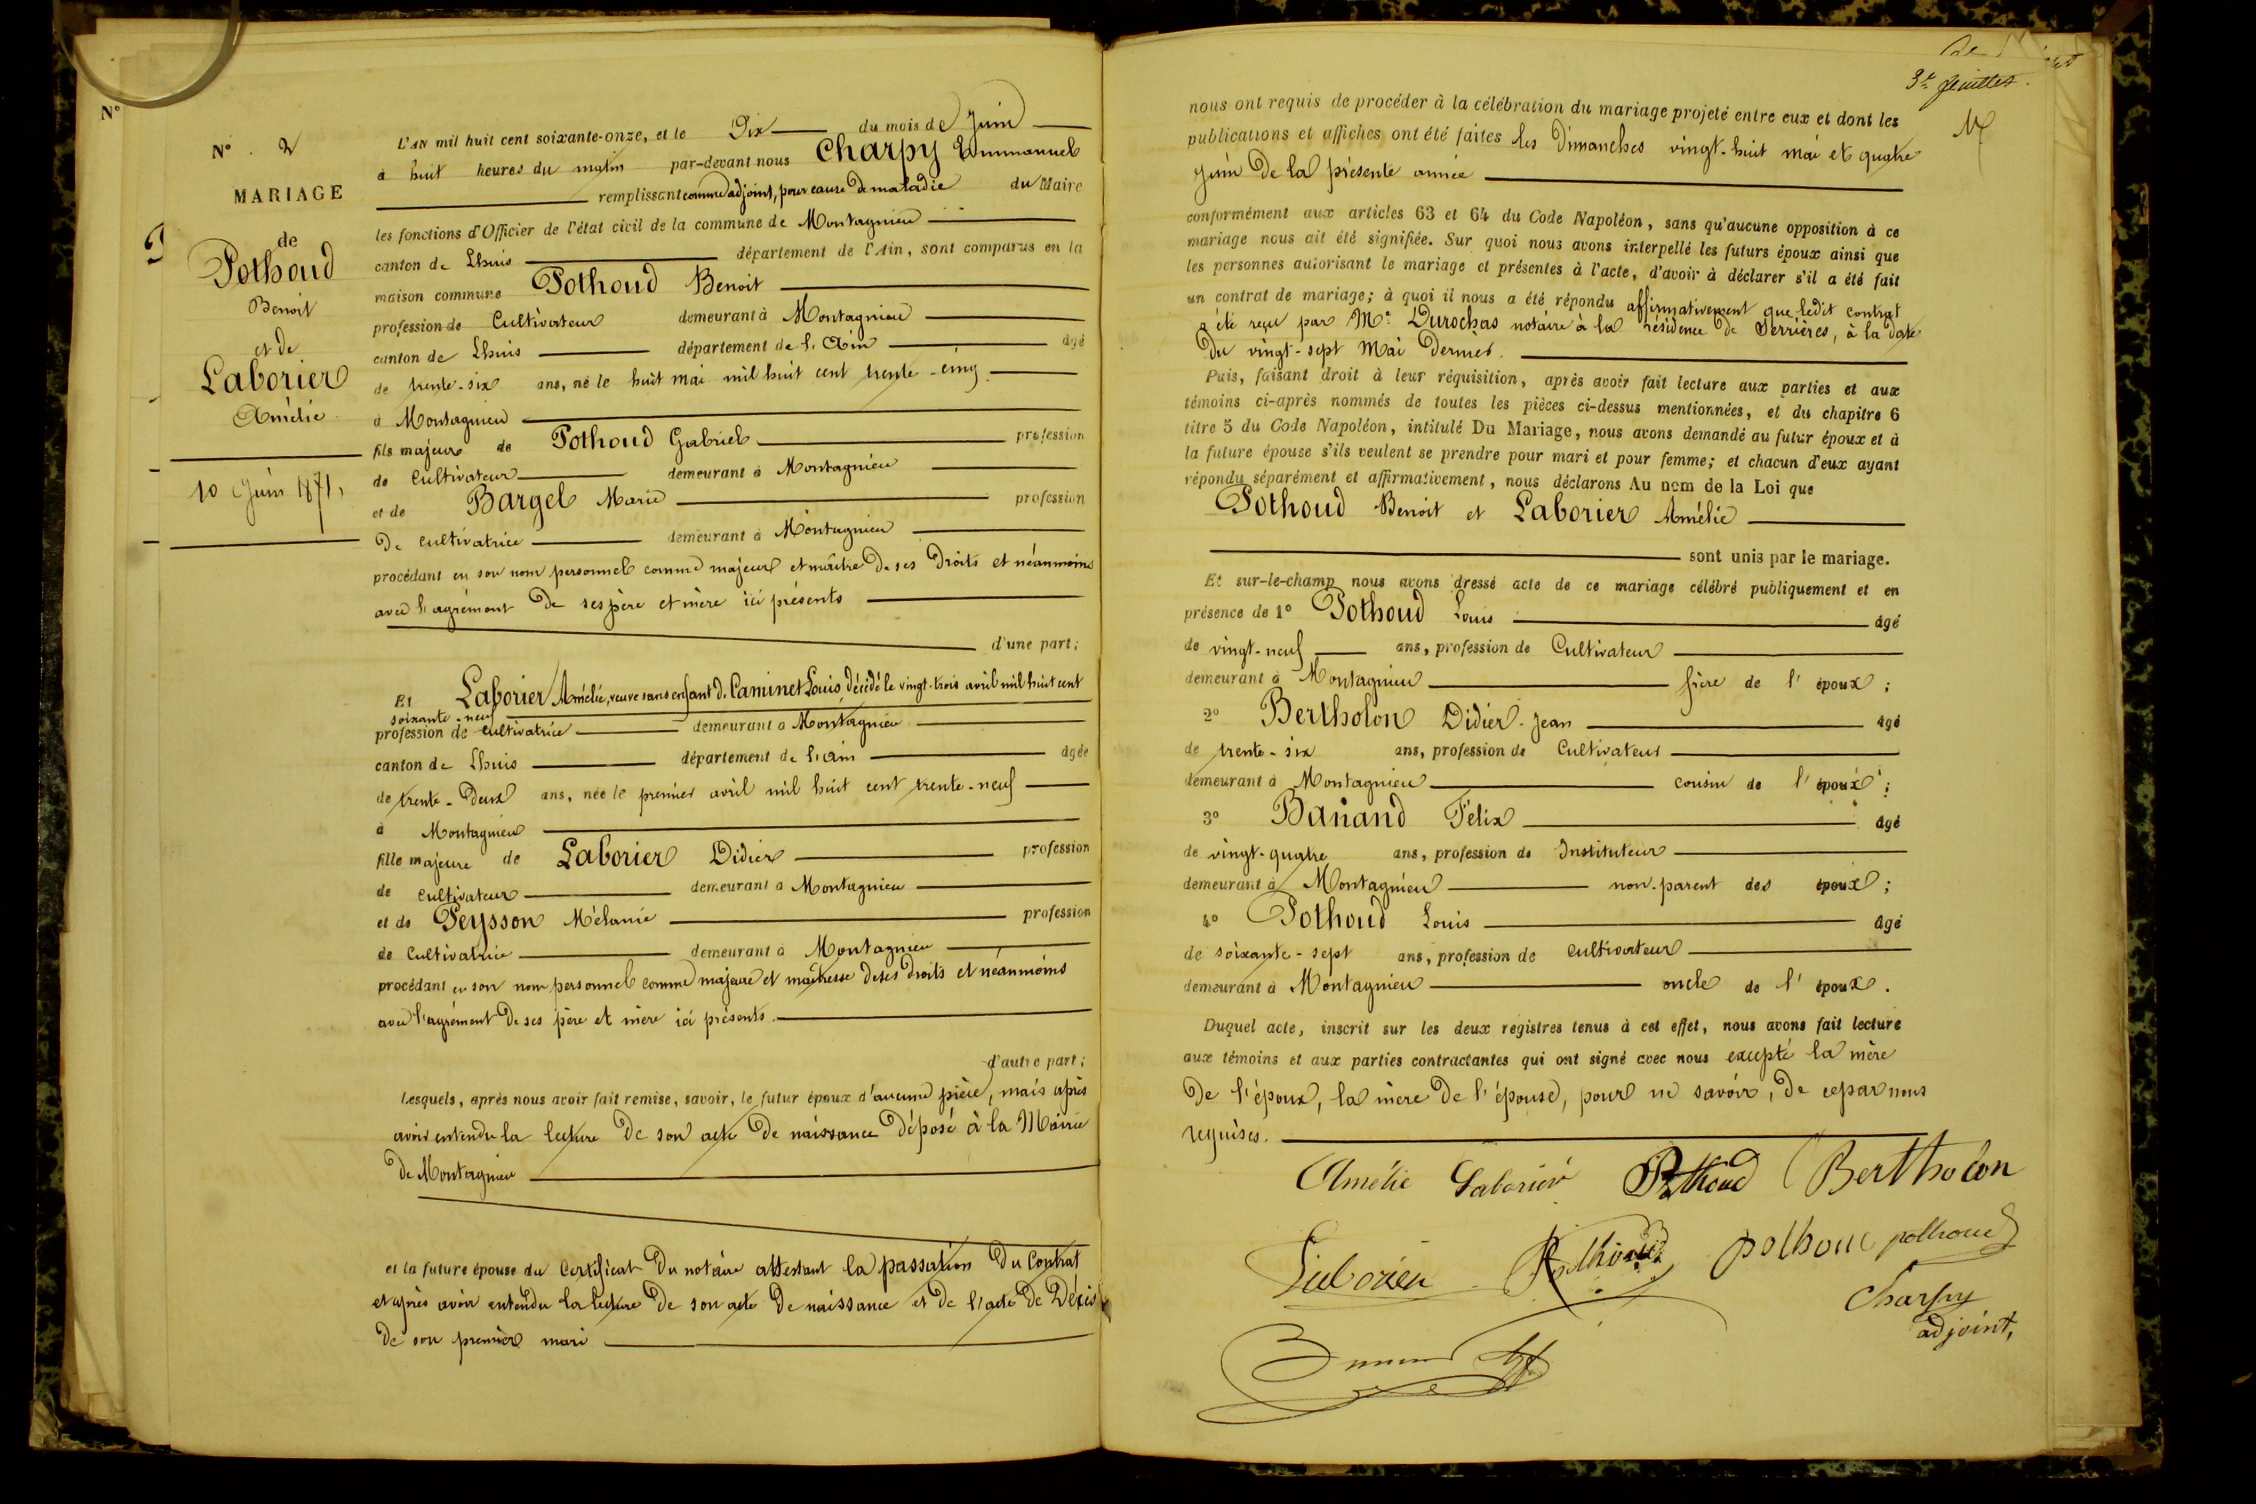 N°
N° 2
MARIAGE
de
Pothoud
Benoit
et de
Laborier
Amélie
10 Juin 1871,
L'AN mil huit cent soixante-onze, et le Dix du mois de Juin
à huit heures du matin par-devant nous Charpy Emmanuel
remplissant comme adjoint, pour cause de maladie du Maire
les fonctions d'Officier de l'état civil de la commune de Montagnieu
canton de Lhuis département de l'Ain, sont comparus en la
maison commune Pothoud Benoit
profession de Cultivateur demeurant à Montagnieu
canton de Lhuis département de l'Ain âgé
de trente-six ans, né le huit mai mil huit cent trente-cinq
à Montagnieu
fils majeur de Pothoud Gabriel profession
de Cultivateur demeurant à Montagnieu
et de Bargel Marie profession
De cultivatrice demeurant à Montagnieu
procédant en son nom personnel comme majeur et maître de ses droits et néanmoins
avec l'agrément de ses père et mère ici présents
d'une part;
Et Laborier Amélie, veuve sans enfant de Caminet Louis, décédé le vingt-trois avril mil huit cent
soixante-neuf
profession de cultivatrice demeurant à Montagnieu
canton de Lhuis département de l'ain âgée
de trente-deux ans, née le premier avril mil huit cent trente-neuf
à Montagnieu
fille majeure de Laborier Didier profession
de cultivateur demeurant à Montagnieu
et de Peysson Mélanie profession
de Cultivatrice demeurant à Montagnieu
procédant en son nom personnel comme majeure et maîtresse de ses droits et néanmoins
avec l'agrément de ses père et mère ici présents.
d'autre part;
Lesquels, après nous avoir fait remise, savoir, le futur époux d'aucune pièce, mais après
avoir entendu la lecture de son acte de naissance déposé à la Mairie
de Montagnieu
et la future épouse du certificat du notaire attestant la passation du contrat
et après avoir entendu la lecture de son acte de naissance et de l'acte de Décès
de son premier mari
3e feuillet.
nous ont requis de procéder à la célébration du mariage projeté entre eux et dont les
publications et affiches ont été faites les Dimanches vingt-huit mai et quatre
juin de la présente année
conformément aux articles 63 et 64 du Code Napoléon, sans qu'aucune opposition à ce
mariage nous ait été signifiée. Sur quoi nous avons interpellé les futurs époux ainsi que
les personnes autorisant le mariage et présentes à l'acte, d'avoir à déclarer s'il a été fait
un contrat de mariage; à quoi il nous a été répondu affirmativement que ledit contrat
a été reçu par Me Durochas notaire à la résidence de Serrières, à la date
du vingt-sept Mai dernier.
Puis, faisant droit à leur réquisition, après avoir fait lecture aux parties et aux
témoins ci-après nommés de toutes les pièces ci-dessus mentionnées, et du chapitre 6
titre 5 du Code Napoléon, intitulé Du Mariage, nous avons demandé au futur époux et à
la future épouse s'ils veulent se prendre pour mari et pour femme; et chacun d'eux ayant
répondu séparément et affirmativement, nous déclarons Au nom de la Loi que
Pothoud Benoit et Laborier Amélie
sont unis par le mariage.
Et sur-le-champ nous avons dressé acte de ce mariage célébré publiquement et en
présence de 1° Pothoud Louis âgé
de vingt-neuf ans, profession de Cultivateur
demeurant à Montagnieu frère de l'époux;
2° Bertholon Didier-Jean âgé
de trente-six ans, profession de Cultivateur
demeurant à Montagnieu cousin de l'époux;
3° Banand Félix âgé
de vingt-quatre ans, profession de Instituteur
demeurant à Montagnieu non-parent des époux;
4° Pothoud Louis âgé
de soixante-sept ans, profession de cultivateur
demeurant à Montagnieu oncle de l'époux.
Duquel acte, inscrit sur les deux registres tenus à cet effet, nous avons fait lecture
aux témoins et aux parties contractantes qui ont signé avec nous excepté la mère
De l'époux, la mère de l'épouse, pour ne savoir, de ce par nous
requises.
Amélie Laborier Pothoud Bertholon
Laborier Pothoud pothoud pothoud
Charpy
adjoint,